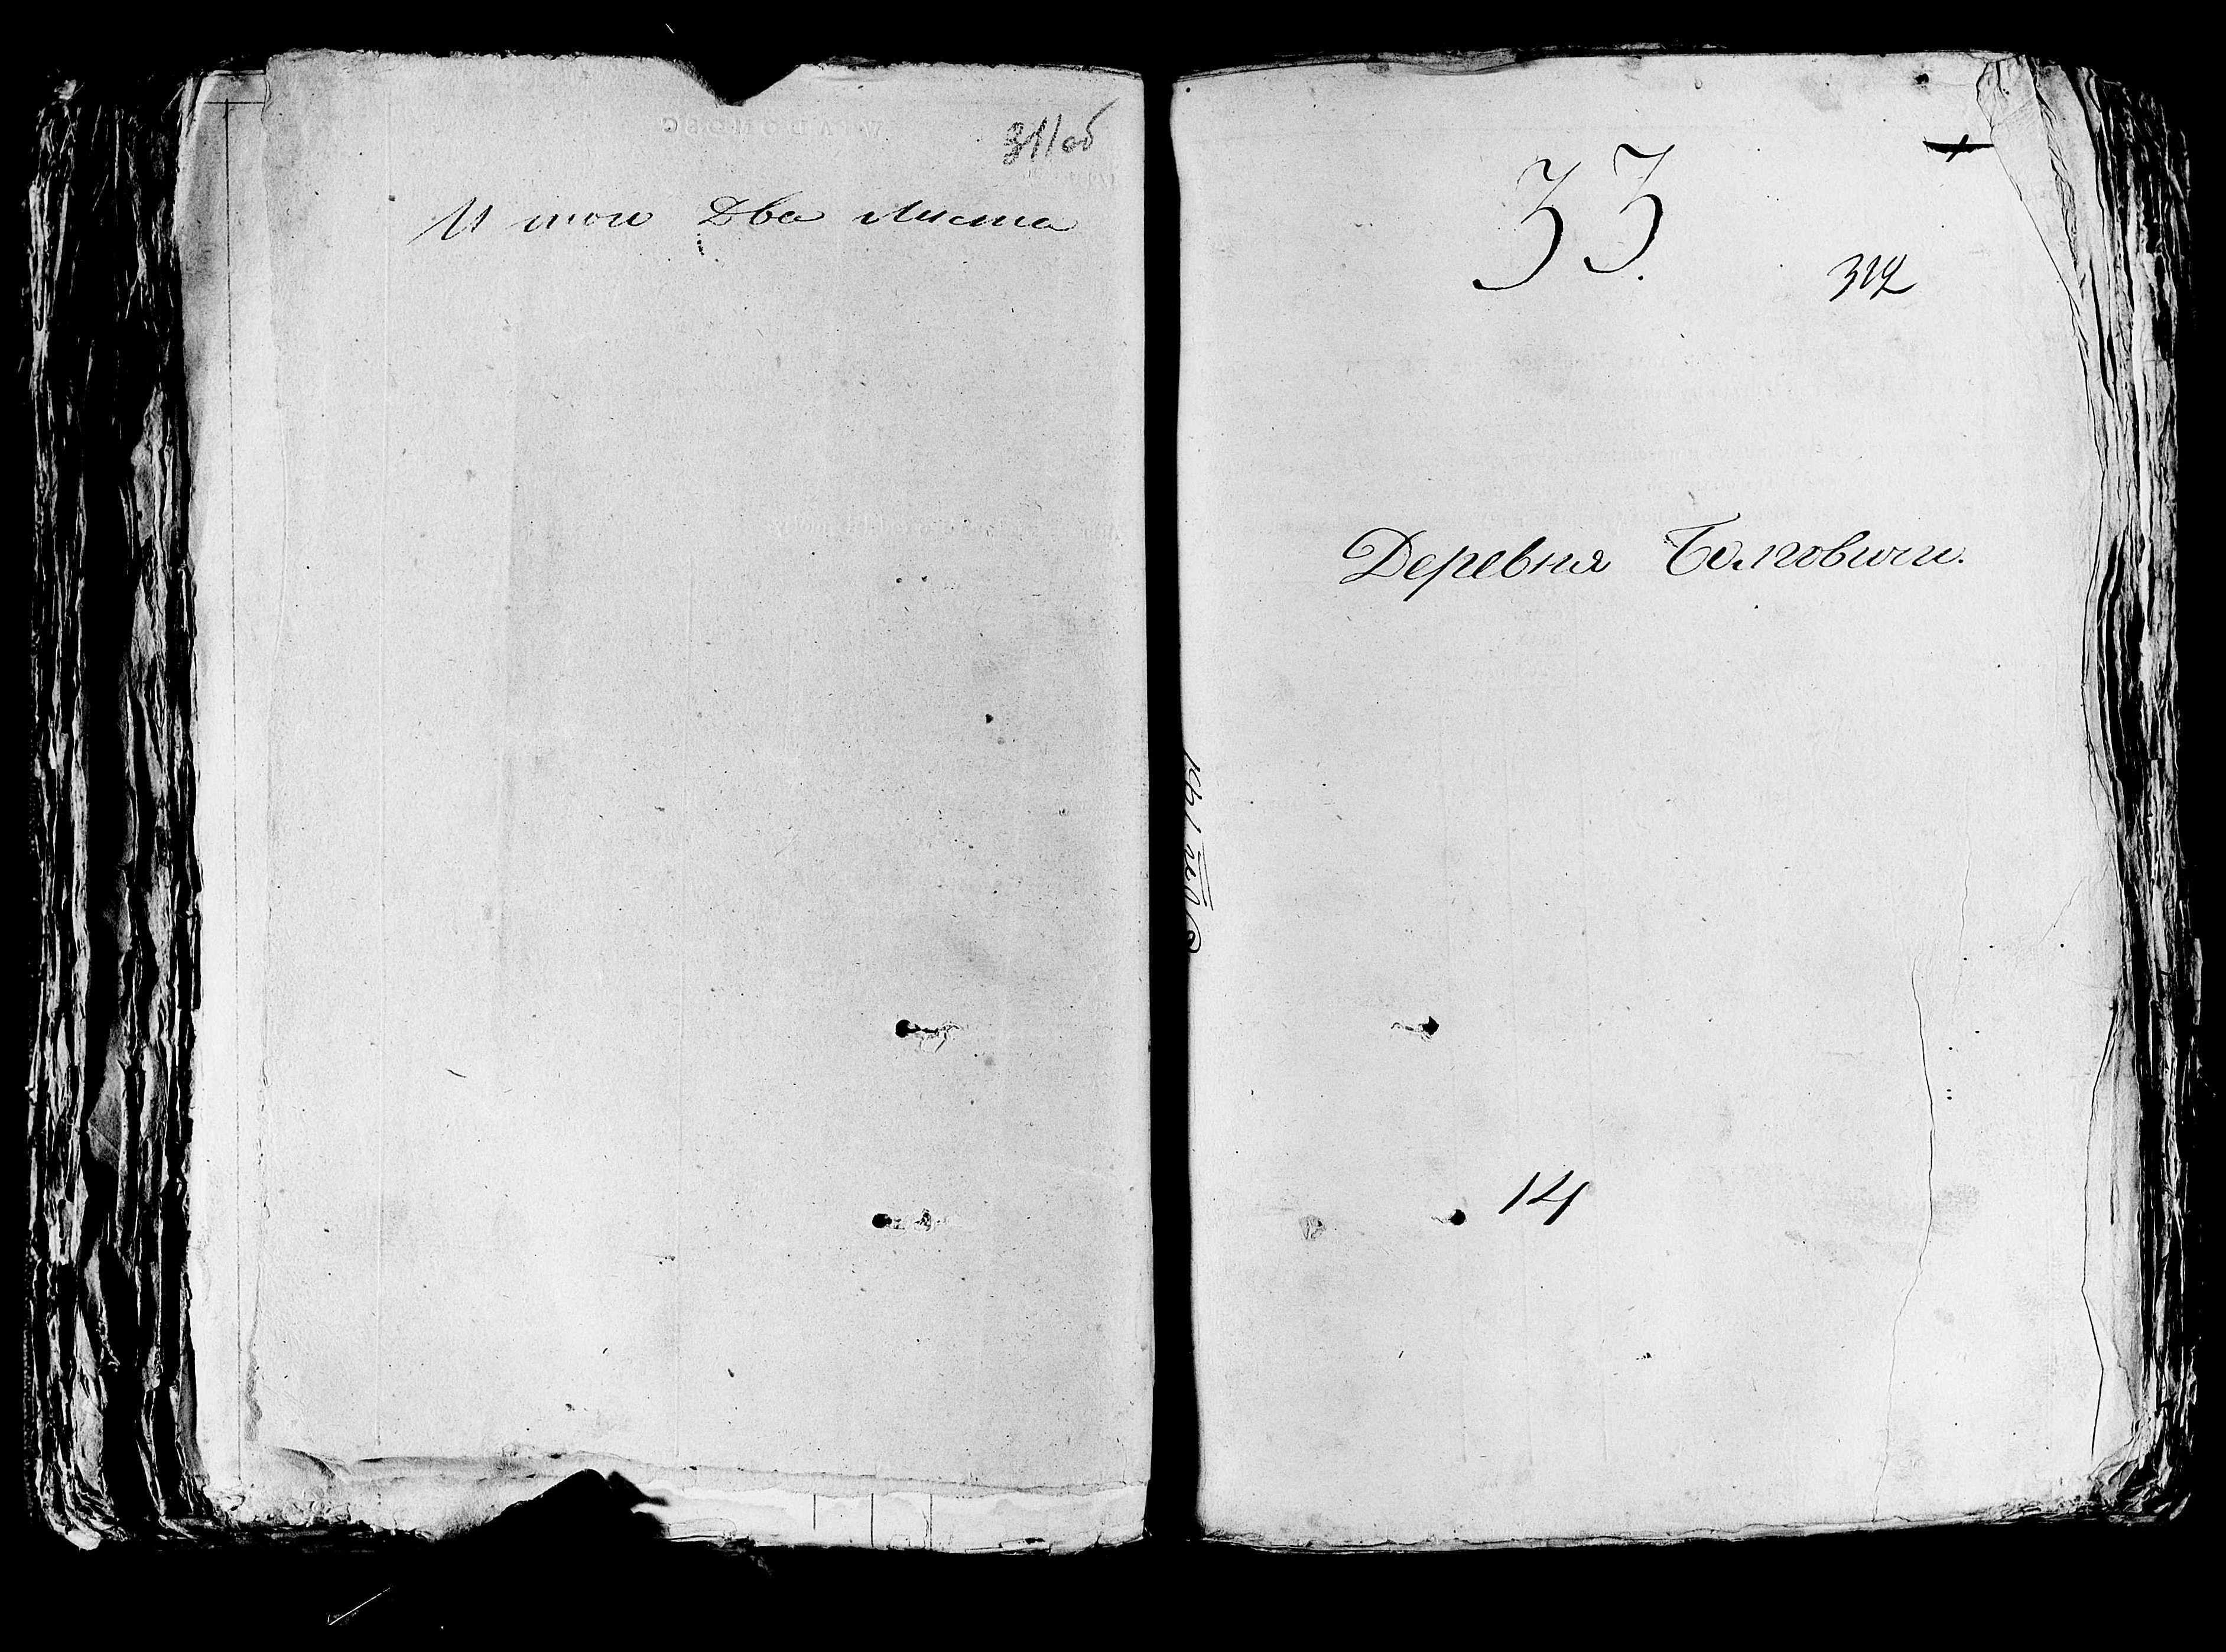 311 об
И того Два листа
33.
312
Деревня Болговичи.
14